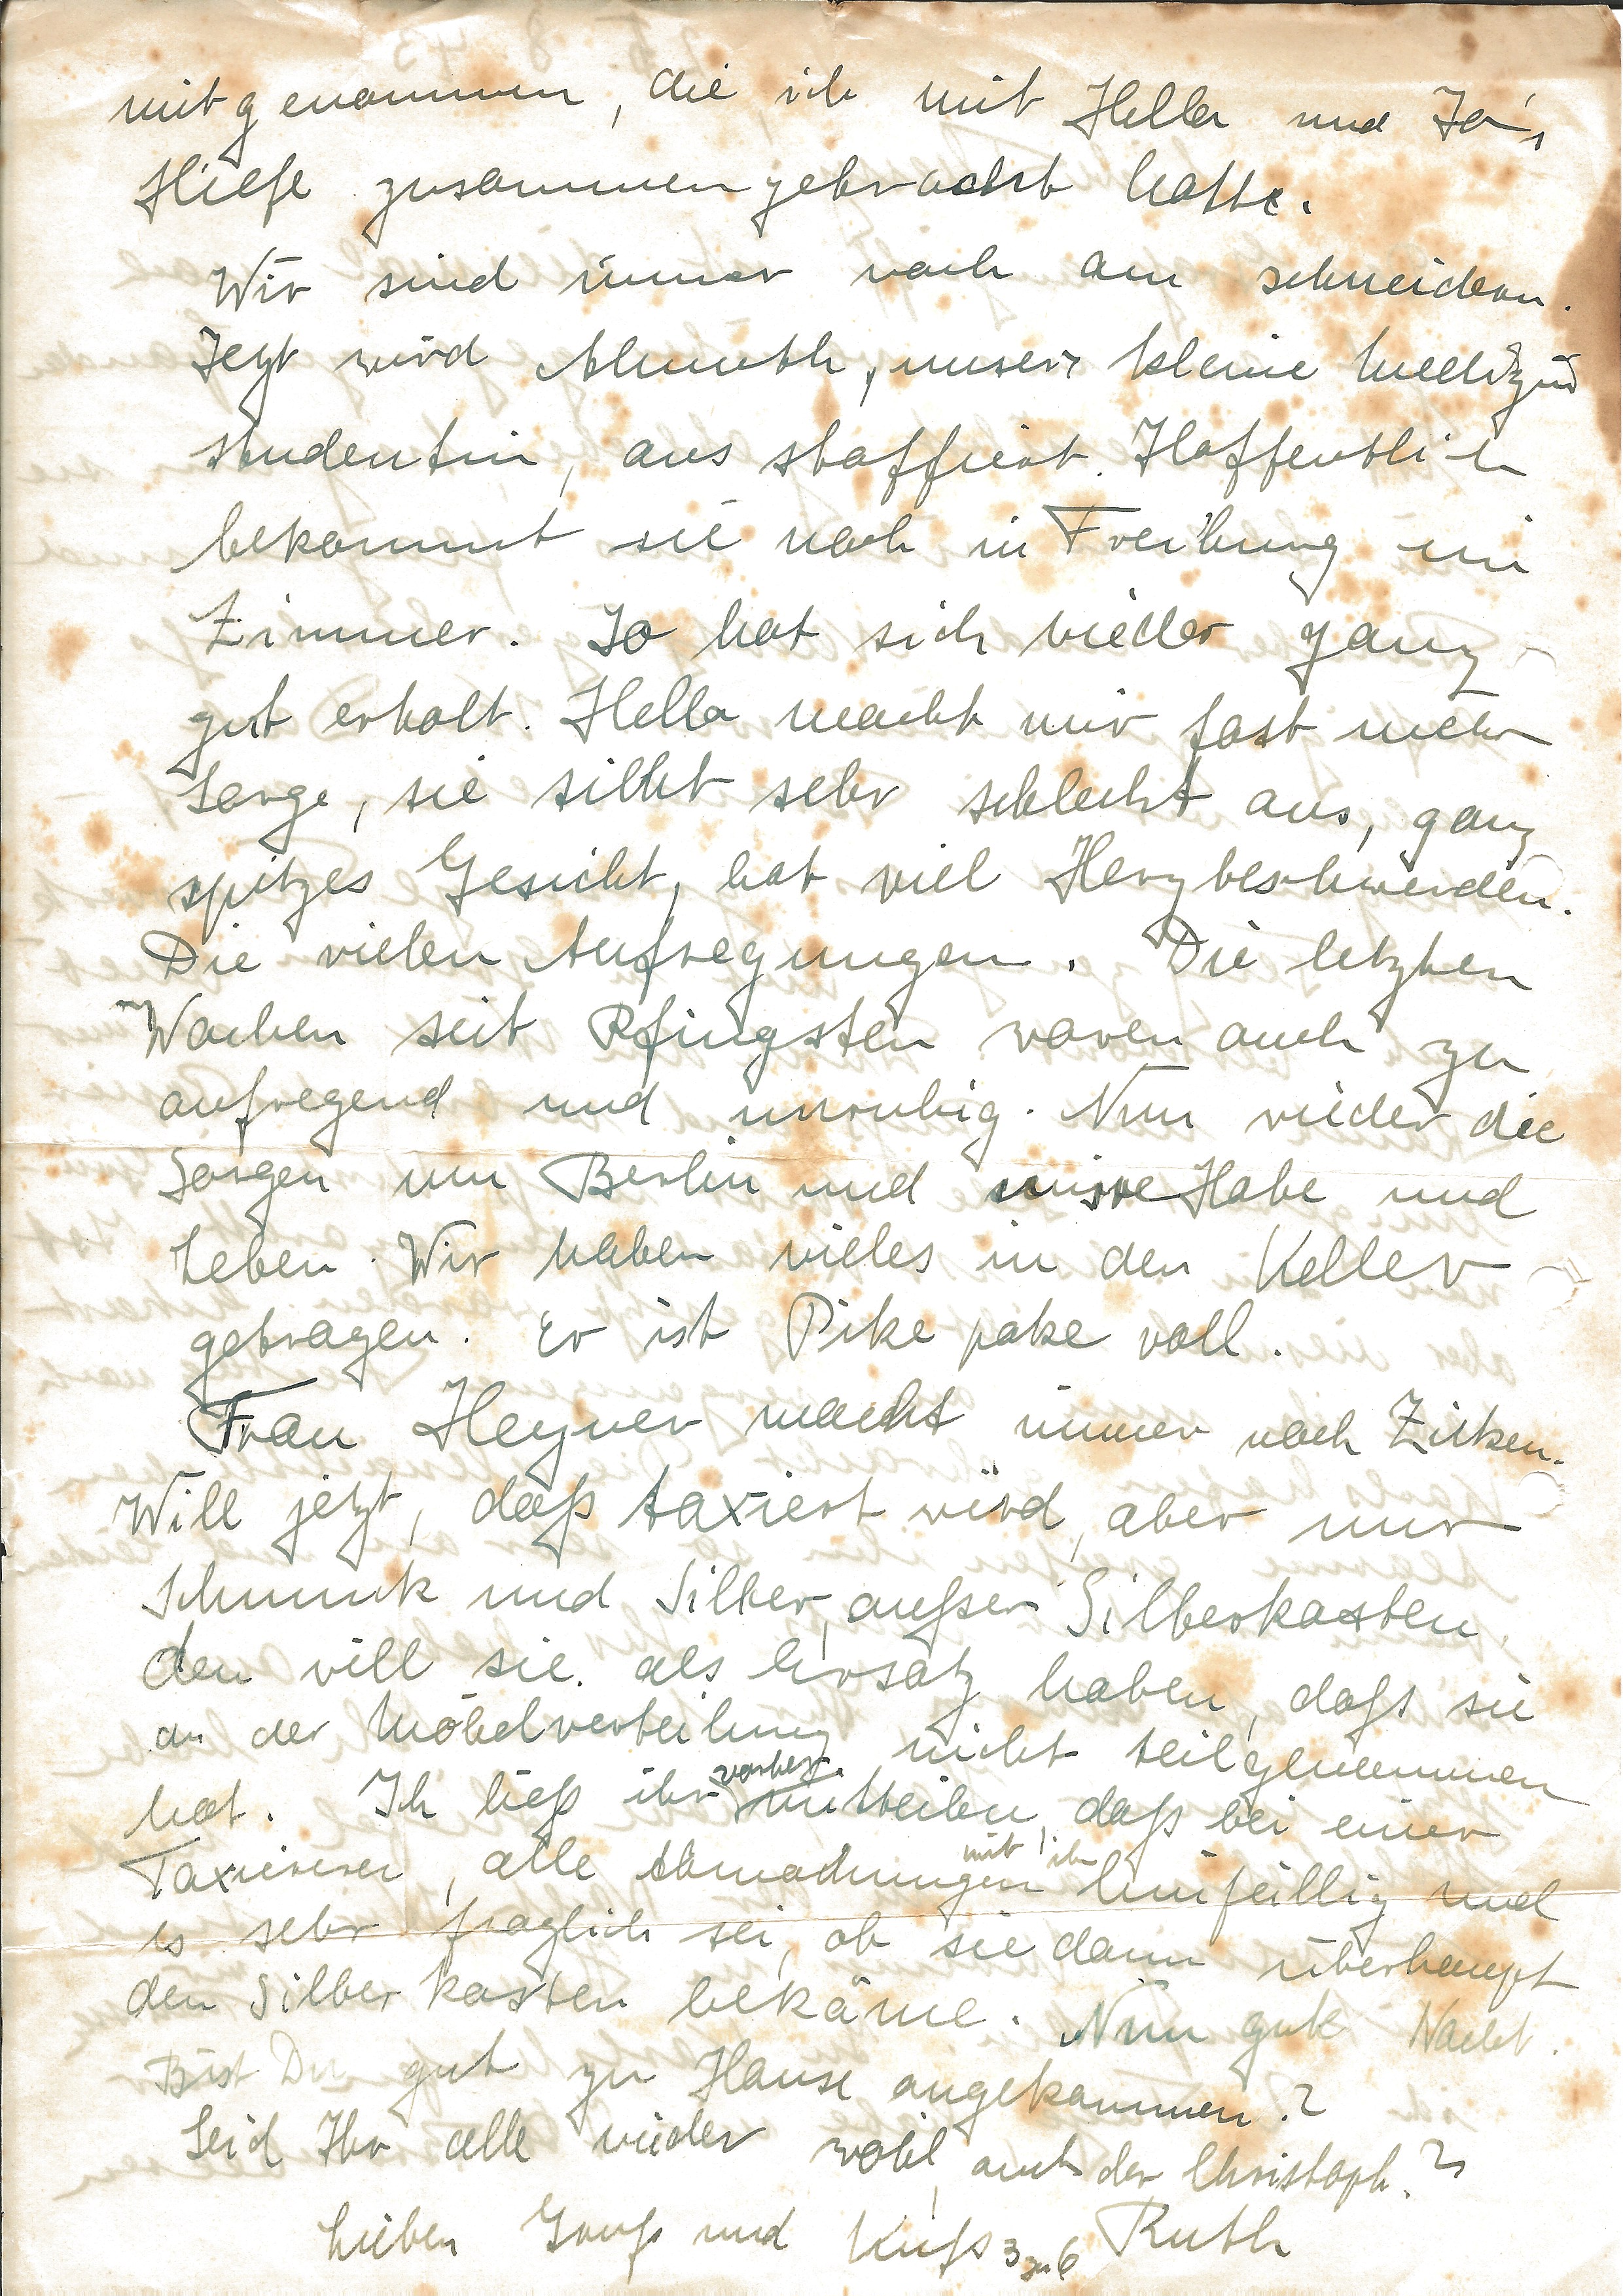 mitgenommen, die ich mit Hella und Jo's
Hilfe zusammengebracht hatte.
Wir sind immer noch am schneidern.
Jetzt wird Almuth, unsere kleine Medizin
studentin, aus staffiert. Hoffentlich
bekommt sie noch in Freiburg ein
Zimmer. Jo hat sich wieder ganz
gut erholt. Hella macht mir fast mehr
Sorge, sie sieht sehr schlecht aus, ganz
spitzes Gesicht, hat viel Herzbeschwerden.
Die vielen Aufregungen. Die letzten
Wochen seit Pfingsten waren auch zu
aufregend und unruhig. Nun wieder die
Sorgen um Berlin und unsre Habe und
Leben. Wir haben vieles in den Keller
getragen. Er ist Pike pake voll.
Frau Heyner macht immer noch Zicken.
Will jetzt, daß taxiert wird, aber nur
Schmuck und Silber, außer Silberkasten,
den will sie als Ersatz haben, daß sie
an der Möbelverteilung nicht teilgenommen
hat. Ich ließ ihr vorher mitteilen, daß bei einer
Taxiererei, alle Abmachungen mit ihr hinfällig und
es sehr fraglich sei, ob sie dann überhaupt
den Silberkasten bekäme. Nun gute Nacht.
Bist Du gut zu Hause angekommen?
Seid Ihr alle wieder wohl, auch der Christoph?
Lieben Gruß und Kuß 3 zu 6 Ruth